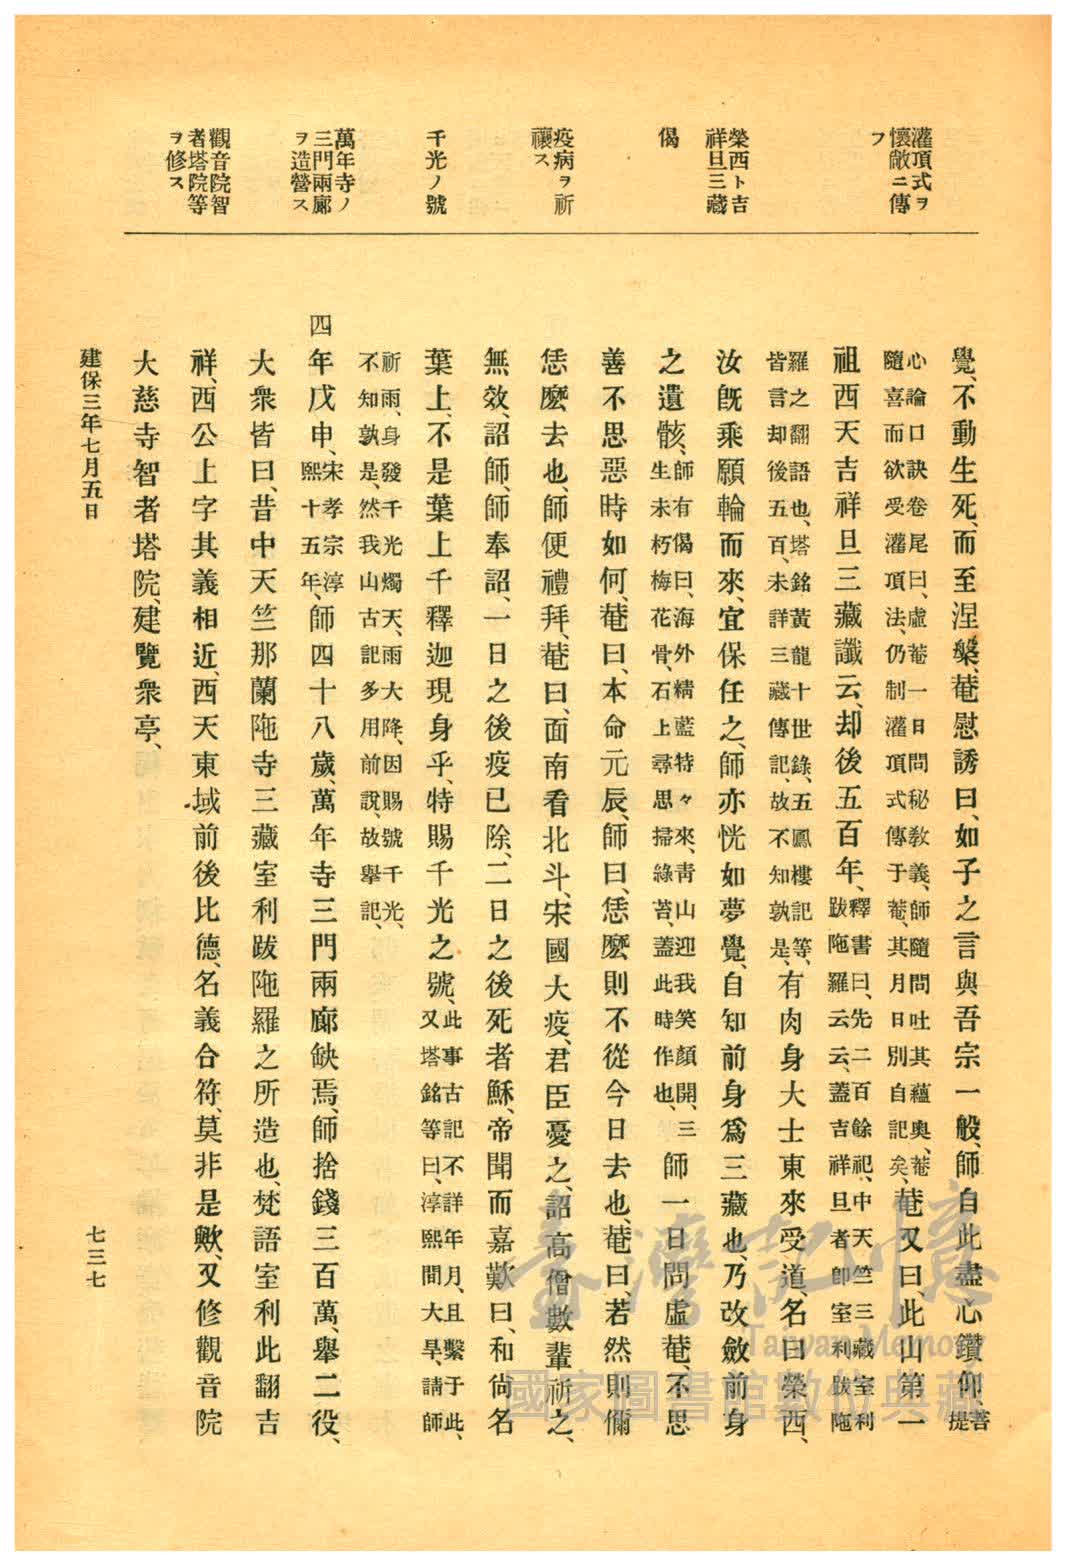 灌頂式ヲ
懷敞ニ傳
フ
榮西ト吉
祥旦三藏
偈
疫病ヲ祈
禳ス
千光ノ號
萬年寺ノ
三門兩廊
ヲ造營ス
觀音院智
者塔院等
ヲ修ス
覺、不動生死、而至涅槃、菴慰誘曰、如子之言與吾宗一般、師自此盡心鑽仰、菩提
心論口訣卷尾曰、虛菴一日問秘敎義、師隨問吐其蘊奧、菴
隨喜而欲受灌頂法、仍制灌頂式傳于菴、其月日別自記矣、菴又曰、此山第一
祖西天吉祥旦三藏讖云、却後五百年、釋書曰、先二百餘祀、中天竺三藏室利
跋陁羅云云、蓋吉祥旦者卽室利跋陁
羅之翻語也、塔銘黃龍十世錄、五鳳樓記等、
皆言却後五百、未詳三藏傳記、故不知孰是、有肉身大士東來受道、名曰榮西、
汝既乘願輪而來、宜保任之、師亦恍如夢覺、自知前身爲三藏也、乃改斂前身
之遺骸、師有偈曰、海外精藍特々來、靑山迎我笑顏開、三
生未朽梅花骨、石上尋思掃綠苔、蓋此時作也、師一日問虛菴、不思
善不思惡時如何、菴曰、本命元辰、師曰、恁麽則不從今日去也、菴曰、若然則儞
恁麽去也、師便禮拜、菴曰、面南看北斗、宋國大疫、君臣憂之、詔高僧數輩祈之、
無效、詔師、師奉詔、一日之後疫已除、二日之後死者穌、帝聞而嘉歎曰、和尙名
葉上、不是葉上千釋迦現身乎、特賜千光之號、此事古記不詳年月、且繫于此、
又塔銘等曰、淳熙間大旱、請師
祈雨、身發千光燭天、雨大降、因賜號千光、
不知孰是、然我山古記多用前說、故擧記、
四年戊申、宋孝宗淳
熙十五年、師四十八歲、萬年寺三門兩廊缺焉、師捨錢三百萬、擧二役、
大衆皆曰、昔中天竺那蘭陁寺三藏室利跋陁羅之所造也、梵語室利此翻吉
祥、西公上字其義相近、西天東域前後比德、名義合符、莫非是歟、又修觀音院
大慈寺智者塔院、建覽衆亭、
建保三年七月五日
七三七
臺灣記憶
Taiwan Memory
國家圖書館數位典藏